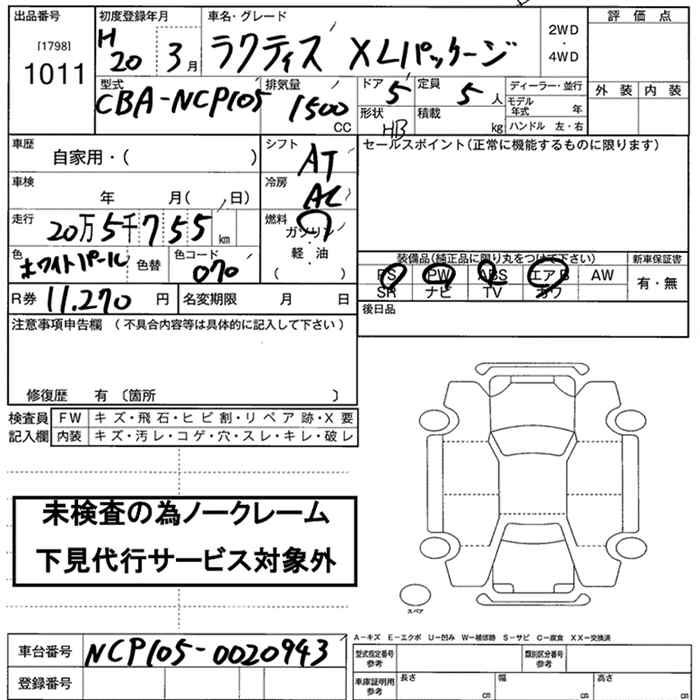 出品番号
[1798]
1011
初度登録年月
H 20 3 月
車名・グレード
ラクティス X Lパッケージ
2WD
・
4WD
評価点
外装 内装
型式
CBA-NCP105
排気量
1500
CC
ドア 5
形状 HB
定員 5 人
積載 kg
ディーラー・並行
モデル年式 年
ハンドル 左・右
車歴
自家用・( )
シフト
AT
セールスポイント(正常に機能するものに限ります)
車検
年 月( 日)
冷房
AC
走行
20万5千755 km
燃料
ガソリン
・
軽・油
( )
色
ホワイトパール
色替
色コード
070
装備品(純正品に限り丸をつけて下さい)
新車保証書
PS PW ABS エアB AW
SR ナビ TV カワ
有・無
R券 11,270 円
名変期限 月 日
後日品
注意事項申告欄 (不具合内容等は具体的に記入して下さい)
修復歴 有 〔箇所 〕
検査員
記入欄
FW キズ・飛石・ヒビ割・リペア跡・X要
内装 キズ・汚レ・コゲ・穴・スレ・キレ・破レ
未検査の為ノークレーム
下見代行サービス対象外
スペア
A-キズ E-エクボ U-凹み W-補修跡 S-サビ C-腐食 XX-交換済
車台番号 NCP105-0020943
登録番号
型式指定番号
参考
類別区分番号
参考
車庫証明用
参考
長さ cm
幅 cm
高さ cm